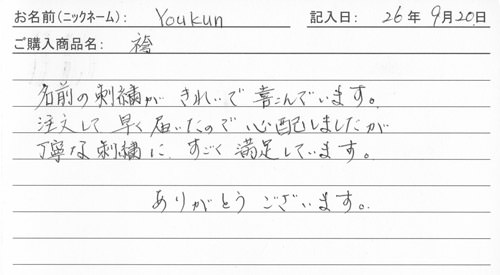 お名前(ニックネーム): Youkun 記入日: 26年 9月20日
ご購入商品名: 袴
名前の刺繍が きれいで 喜んでいます。
注文して 早く届いたので 心配しましたが
丁寧な刺繍に すごく 満足しています。
ありがとう ございます。